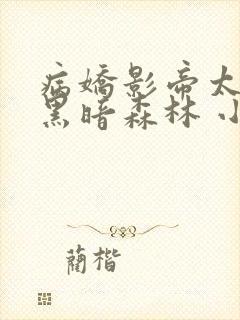 病嬌影帝太
黑暗森林 小
藺楷